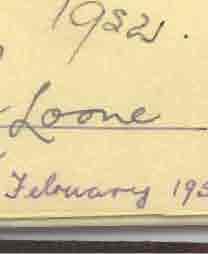 1952.
Loone
February 195